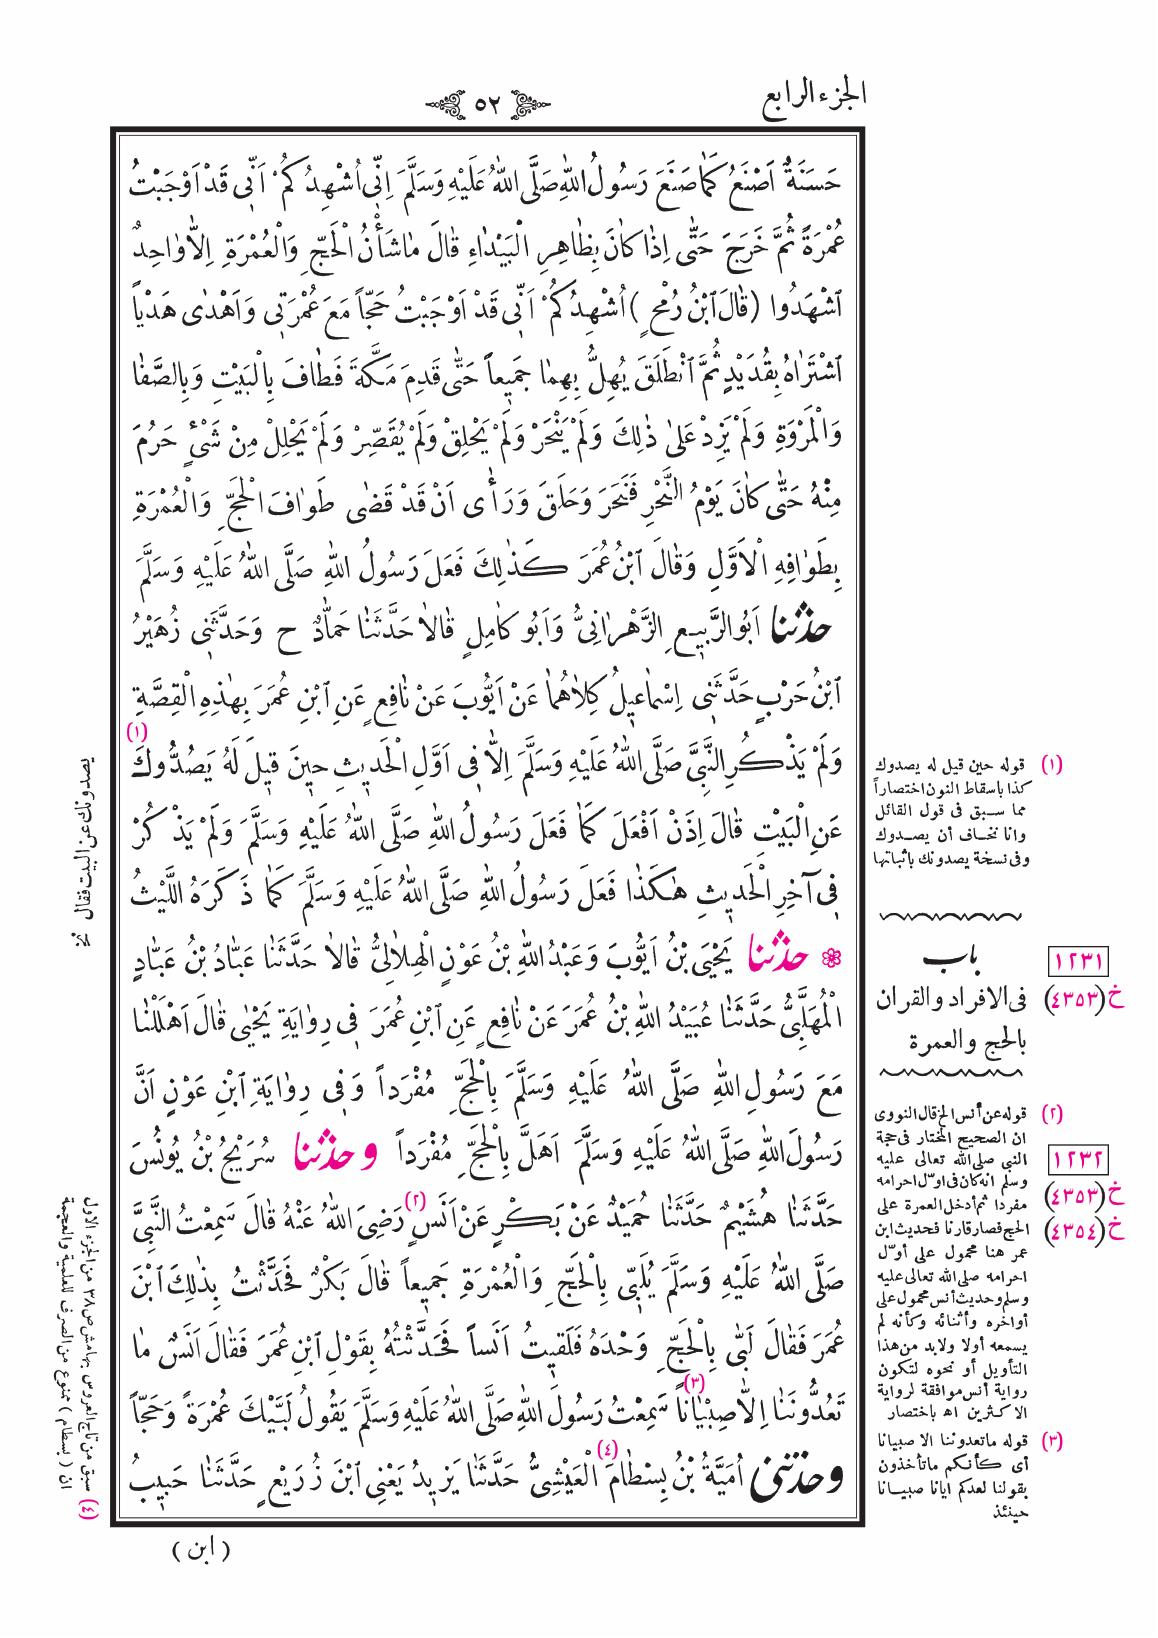 الجزء الرابع
٥٢
حَسَنَةٌ اَصْنَعُ كَمَا صَنَعَ رَسُولُ اللهِ صَلَّى اللهُ عَلَيْهِ وَسَلَّمَ اِنِّى اُشْهِدُكُمْ اَنِّى قَدْ اَوْجَبْتُ
عُمْرَةً ثُمَّ خَرَجَ حَتَّى اِذَا كَانَ بِظَاهِرِ الْبَيْدَاءِ قَالَ مَا شَأْنُ الْحَجِّ وَالْعُمْرَةِ اِلاَّ وَاحِدٌ
اشْهَدُوا (قَالَ ابْنُ رُمْحٍ) اُشْهِدُكُمْ اَنِّى قَدْ اَوْجَبْتُ حَجّاً مَعَ عُمْرَتِى وَاَهْدٰى هَدْياً
اشْتَرَاهُ بِقُدَيْدٍ ثُمَّ انْطَلَقَ يُهِلُّ بِهِمَا جَمِيعاً حَتَّى قَدِمَ مَكَّةَ فَطَافَ بِالْبَيْتِ وَبِالصَّفَا
وَالْمَرْوَةِ وَلَمْ يَزِدْ عَلىٰ ذٰلِكَ وَلَمْ يَنْحَرْ وَلَمْ يَحْلِقْ وَلَمْ يُقَصِّرْ وَلَمْ يَحْلِلْ مِنْ شَىْءٍ حَرُمَ
مِنْهُ حَتَّى كَانَ يَوْمُ النَّحْرِ فَنَحَرَ وَحَلَقَ وَرَأٰى اَنْ قَدْ قَضٰى طَوَافَ الْحَجِّ وَالْعُمْرَةِ
بِطَوَافِهِ الْاَوَّلِ وَقَالَ ابْنُ عُمَرَ كَذٰلِكَ فَعَلَ رَسُولُ اللهِ صَلَّى اللهُ عَلَيْهِ وَسَلَّمَ
حدثنا اَبُو الرَّبِيعِ الزَّهْرَانِىُّ وَاَبُو كَامِلٍ قَالاَ حَدَّثَنَا حَمَّادٌ ح وَحَدَّثَنِى زُهَيْرُ
ابْنُ حَرْبٍ حَدَّثَنِى اِسْمَاعِيلُ كِلاَهُمَا عَنْ اَيُّوبَ عَنْ نَافِعٍ عَنِ ابْنِ عُمَرَ بِهٰذِهِ الْقِصَّةِ
وَلَمْ يَذْكُرِ النَّبِىَّ صَلَّى اللهُ عَلَيْهِ وَسَلَّمَ اِلاَّ فِى اَوَّلِ الْحَدِيثِ حِينَ قِيلَ لَهُ يَصُدُّوكَ (١)
عَنِ الْبَيْتِ قَالَ اِذَنْ اَفْعَلَ كَمَا فَعَلَ رَسُولُ اللهِ صَلَّى اللهُ عَلَيْهِ وَسَلَّمَ وَلَمْ يَذْكُرْ
فِى آخِرِ الْحَدِيثِ هٰكَذَا فَعَلَ رَسُولُ اللهِ صَلَّى اللهُ عَلَيْهِ وَسَلَّمَ كَمَا ذَكَرَهُ اللَّيْثُ
حدثنا يَحْيَى بْنُ اَيُّوبَ وَعَبْدُ اللهِ بْنُ عَوْنٍ الْهِلاَلِىُّ قَالاَ حَدَّثَنَا عَبَّادُ بْنُ عَبَّادٍ
الْمُهَلَّبِىُّ حَدَّثَنَا عُبَيْدُ اللهِ بْنُ عُمَرَ عَنْ نَافِعٍ عَنِ ابْنِ عُمَرَ فِى رِوَايَةِ يَحْيٰى قَالَ اَهْلَلْنَا
مَعَ رَسُولِ اللهِ صَلَّى اللهُ عَلَيْهِ وَسَلَّمَ بِالْحَجِّ مُفْرَداً وَفِى رِوَايَةِ ابْنِ عَوْنٍ اَنَّ
رَسُولَ اللهِ صَلَّى اللهُ عَلَيْهِ وَسَلَّمَ اَهَلَّ بِالْحَجِّ مُفْرَداً وحدثنا سُرَيْجُ بْنُ يُونُسَ
حَدَّثَنَا هُشَيْمٌ حَدَّثَنَا حُمَيْدٌ عَنْ بَكْرٍ عَنْ اَنَسٍ (٢) رَضِىَ اللهُ عَنْهُ قَالَ سَمِعْتُ النَّبِىَّ
صَلَّى اللهُ عَلَيْهِ وَسَلَّمَ يُلَبِّى بِالْحَجِّ وَالْعُمْرَةِ جَمِيعاً قَالَ بَكْرٌ فَحَدَّثْتُ بِذٰلِكَ ابْنَ
عُمَرَ فَقَالَ لَبَّى بِالْحَجِّ وَحْدَهُ فَلَقِيتُ اَنَساً فَحَدَّثْتُهُ بِقَوْلِ ابْنِ عُمَرَ فَقَالَ اَنَسٌ مَا
تَعُدُّونَنَا اِلاَّ صِبْيَاناً (٣) سَمِعْتُ رَسُولَ اللهِ صَلَّى اللهُ عَلَيْهِ وَسَلَّمَ يَقُولُ لَبَّيْكَ عُمْرَةً وَحَجّاً
وحدثنى اُمَيَّةُ بْنُ بِسْطَامَ (٤) الْعَيْشِىُّ حَدَّثَنَا يَزِيدُ يَعْنِى ابْنَ زُرَيْعٍ حَدَّثَنَا حَبِيبُ
( ابن )
(١) قوله حين قيل له يصدوك
كذا باسقاط النون اختصاراً
مما سبق فى قول القائل
وانا نخاف أن يصدوك
وفى نسخة يصدونك باثباتها
باب
فى الافراد والقران
بالحج والعمرة
١٢٣١
خ (٤٣٥٣)
(٢) قوله عن أنس الخ قال النووى
ان الصحيح المختار فى حجة
النبى صلى الله تعالى عليه
وسلم انه كان فى اوّل احرامه
مفردا ثم أدخل العمرة على
الحج فصار قارنا فحديث ابن
عمر هنا محمول على أوّل
احرامه صلى الله تعالى عليه
وسلم وحديث أنس محمول على
أواخره وأثنائه وكأنه لم
يسمعه أولا ولابد من هذا
التأويل أو نحوه لتكون
رواية أنس موافقة لرواية
الاكثرين اه باختصار
١٢٣٢
خ (٤٣٥٣)
خ (٤٣٥٤)
(٣) قوله ما تعدوننا الا صبيانا
أى كأنكم ما تأخذون
بقولنا لعدكم ايانا صبيانا
حينئذ
يصدونك عن البيت فقال نخ
(٤) سبق من تاج العروس بهامش ص ٣٨ من الجزء الاول
ان ( بسطام ) ممنوع من الصرف للعلمية والعجمة